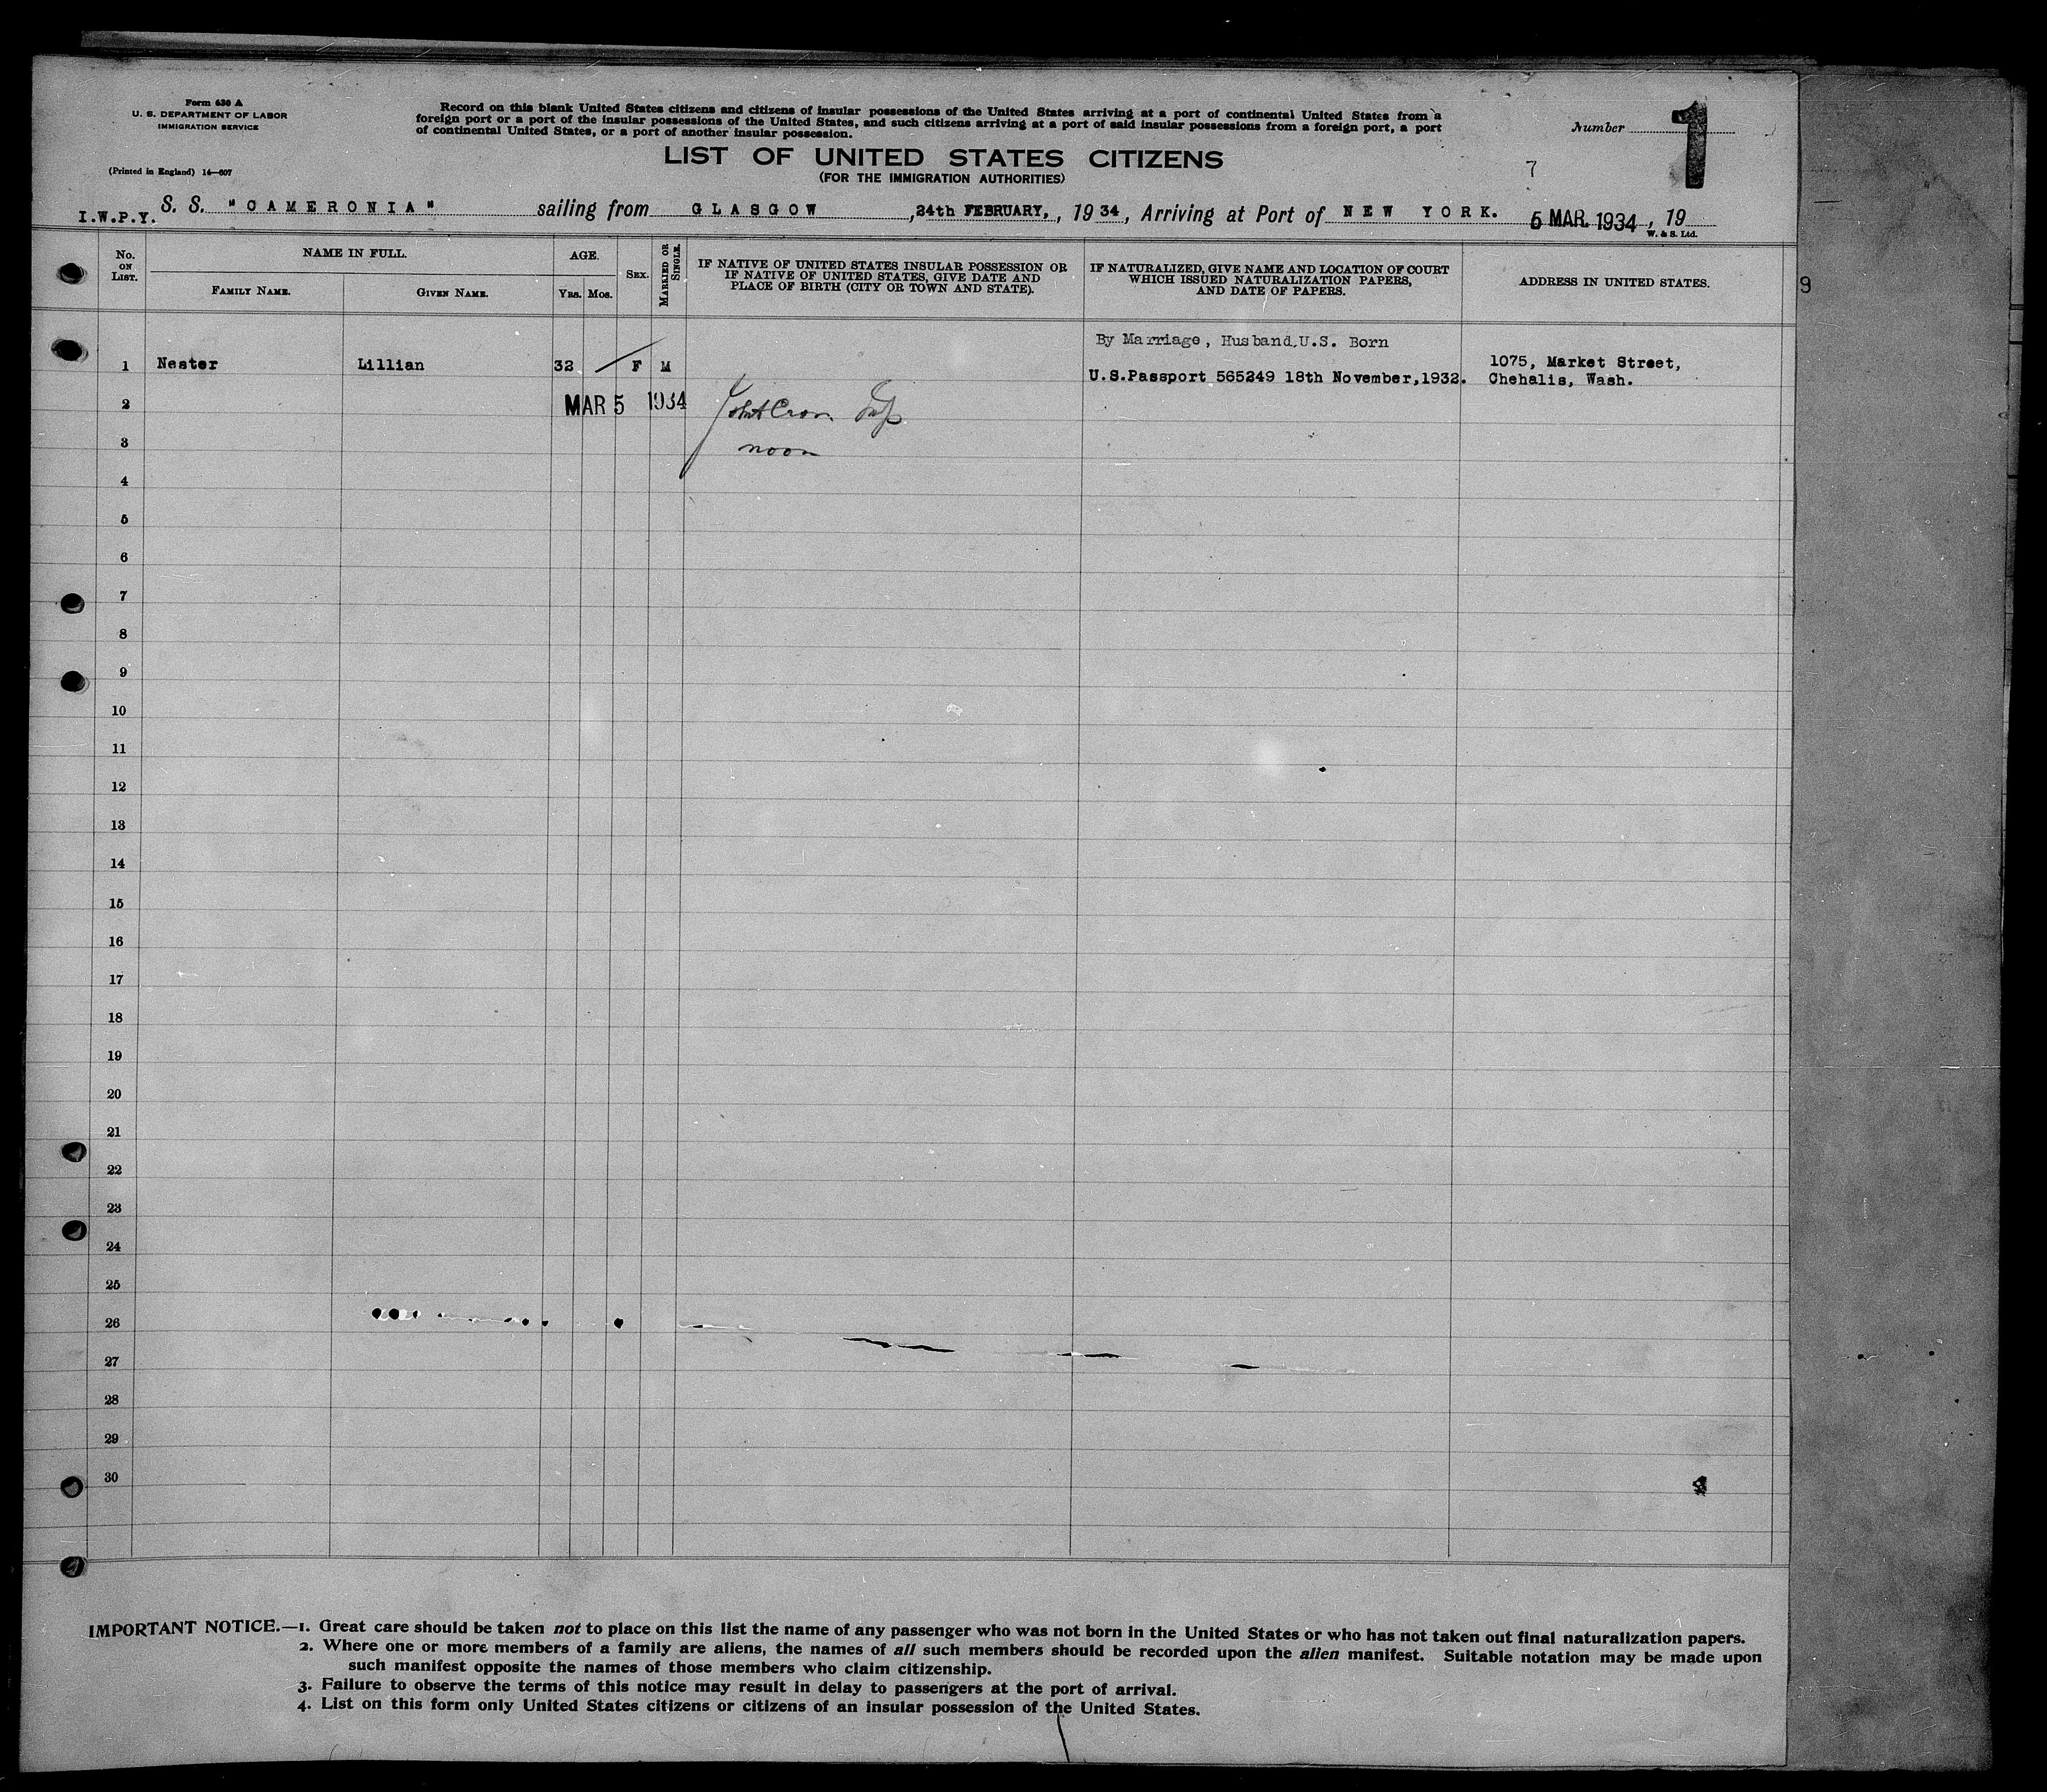 Form 630 A
U. S. DEPARTMENT OF LABOR
IMMIGRATION SERVICE
(Printed in England) 14—607
Record on this blank United States citizens and citizens of insular possessions of the United States arriving at a port of continental United States from a
foreign port or a port of the insular possessions of the United States, and such citizens arriving at a port of said insular possessions from a foreign port, a port
of continental United States, or a port of another insular possession.
Number 1
LIST OF UNITED STATES CITIZENS
(FOR THE IMMIGRATION AUTHORITIES)
7
I.W.P.Y. S. S. "CAMERONIA" sailing from GLASGOW, 24th FEBRUARY, , 1934, Arriving at Port of NEW YORK. 5 MAR. 1934, 19
W. & S. Ltd.
No. ON LIST.
NAME IN FULL.
FAMILY NAME.
GIVEN NAME.
AGE.
YRS. MOS.
SEX.
MARRIED OR SINGLE.
IF NATIVE OF UNITED STATES INSULAR POSSESSION OR
IF NATIVE OF UNITED STATES, GIVE DATE AND
PLACE OF BIRTH (CITY OR TOWN AND STATE).
IF NATURALIZED, GIVE NAME AND LOCATION OF COURT
WHICH ISSUED NATURALIZATION PAPERS,
AND DATE OF PAPERS.
ADDRESS IN UNITED STATES.
9
By Marriage, Husband,U.S. Born
1 Nester Lillian 32 F M
U.S.Passport 565249 18th November,1932.
1075, Market Street,
Chehalis, Wash.
2 MAR 5 1934
3 noon
4
5
6
7
8
9
10
11
12
13
14
15
16
17
18
19
20
21
22
23
24
25
26
27
28
29
30
IMPORTANT NOTICE.—1. Great care should be taken not to place on this list the name of any passenger who was not born in the United States or who has not taken out final naturalization papers.
2. Where one or more members of a family are aliens, the names of all such members should be recorded upon the alien manifest. Suitable notation may be made upon
such manifest opposite the names of those members who claim citizenship.
3. Failure to observe the terms of this notice may result in delay to passengers at the port of arrival.
4. List on this form only United States citizens or citizens of an insular possession of the United States.